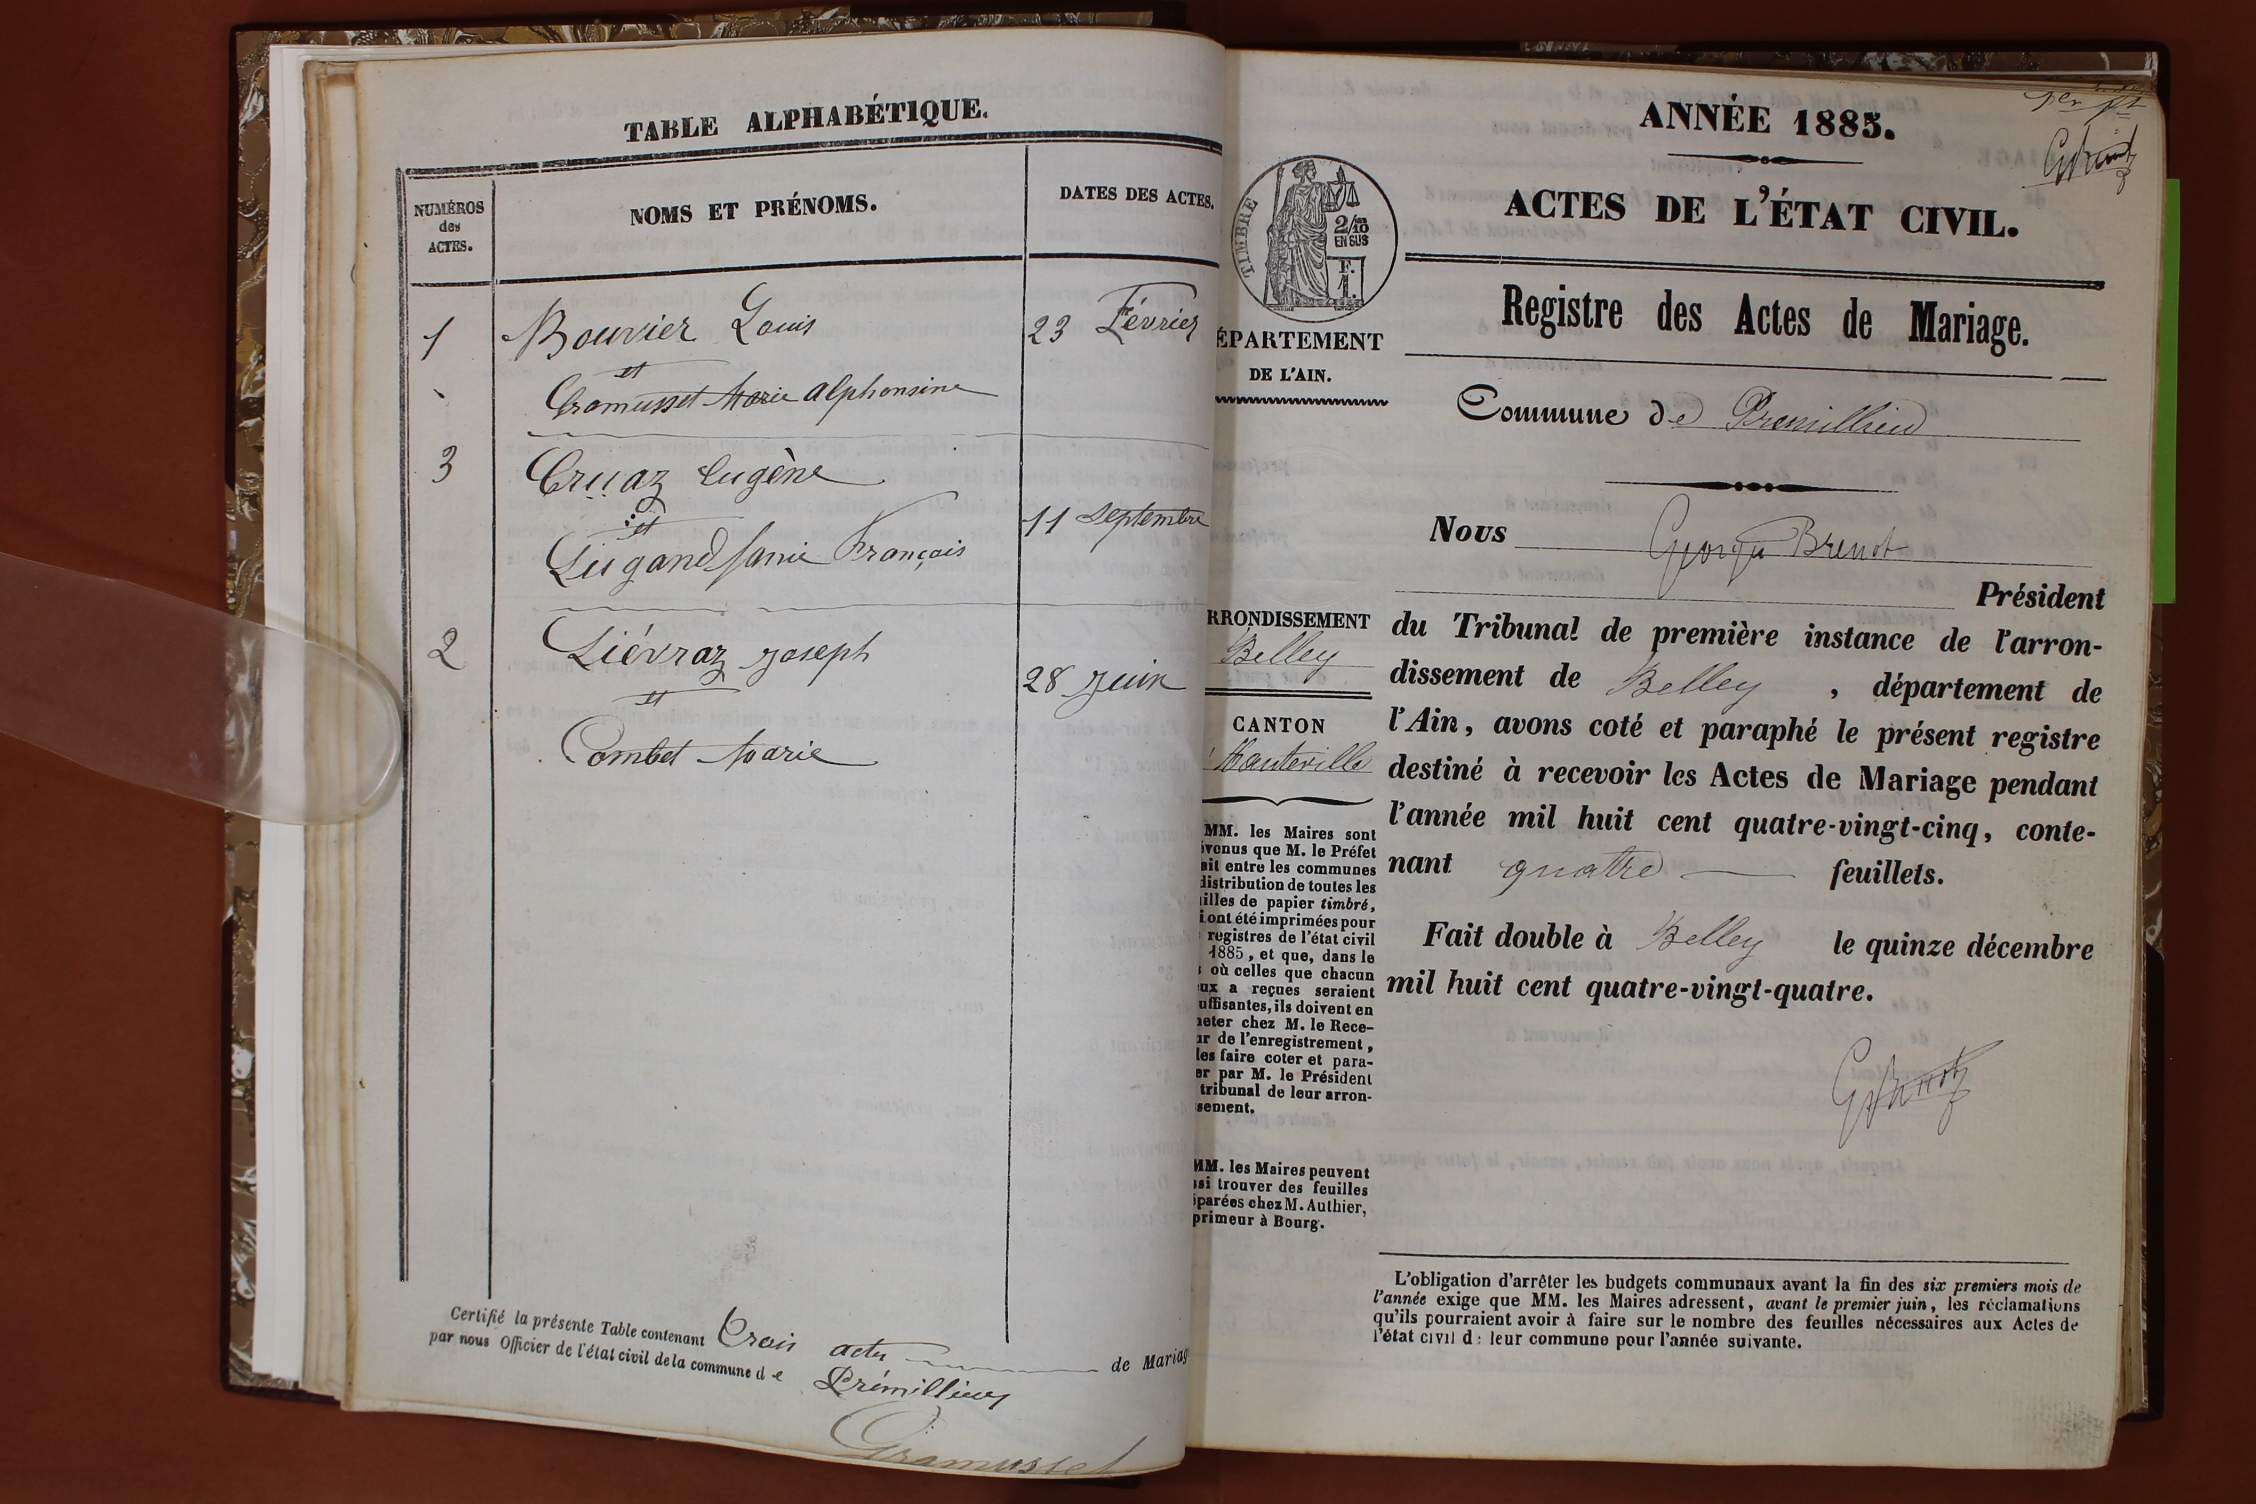 TABLE ALPHABÉTIQUE.
NUMÉROS
des
ACTES.
NOMS ET PRÉNOMS.
DATES DES ACTES.
1 Bouvier Louis 23 Février
et
Gramusset Marie Alphonsine
3 Cruaz Eugène
et 11 Septembre
Lugand François
2 Liévraz Joseph
et 28 Juin
Combet Marie
Certifié la présente Table contenant Trois actes de Mariag
par nous Officier de l'état civil de la commune de Prémillieu
Gramusset
ANNÉE 1885.
ACTES DE L'ÉTAT CIVIL.
TIMBRE
2/10
EN SUS
F.
1.
ÉPARTEMENT
DE L'AIN.
RRONDISSEMENT
Belley
CANTON
Hauteville
MM. les Maires sont
évenus que M. le Préfet
ait entre les communes
distribution de toutes les
illes de papier timbré,
i ont été imprimées pour
registres de l'état civil
1885, et que, dans le
s où celles que chacun
eux a reçues seraient
uffisantes, ils doivent en
heter chez M. le Rece-
ur de l'enregistrement,
les faire coter et para-
er par M. le Président
tribunal de leur arron-
ssement.
MM. les Maires peuvent
ssi trouver des feuilles
éparées chez M. Authier,
primeur à Bourg.
Registre des Actes de Mariage.
Commune de Premillieu
Nous Georges Brenot
Président
du Tribunal de première instance de l'arron-
dissement de Belley, département de
l'Ain, avons coté et paraphé le présent registre
destiné à recevoir les Actes de Mariage pendant
l'année mil huit cent quatre-vingt-cinq, conte-
nant quatre feuillets.
Fait double à Belley le quinze décembre
mil huit cent quatre-vingt-quatre.
L'obligation d'arrêter les budgets communaux avant la fin des six premiers mois de
l'année exige que MM. les Maires adressent, avant le premier juin, les réclamations
qu'ils pourraient avoir à faire sur le nombre des feuilles nécessaires aux Actes de
l'état civil d: leur commune pour l'année suivante.